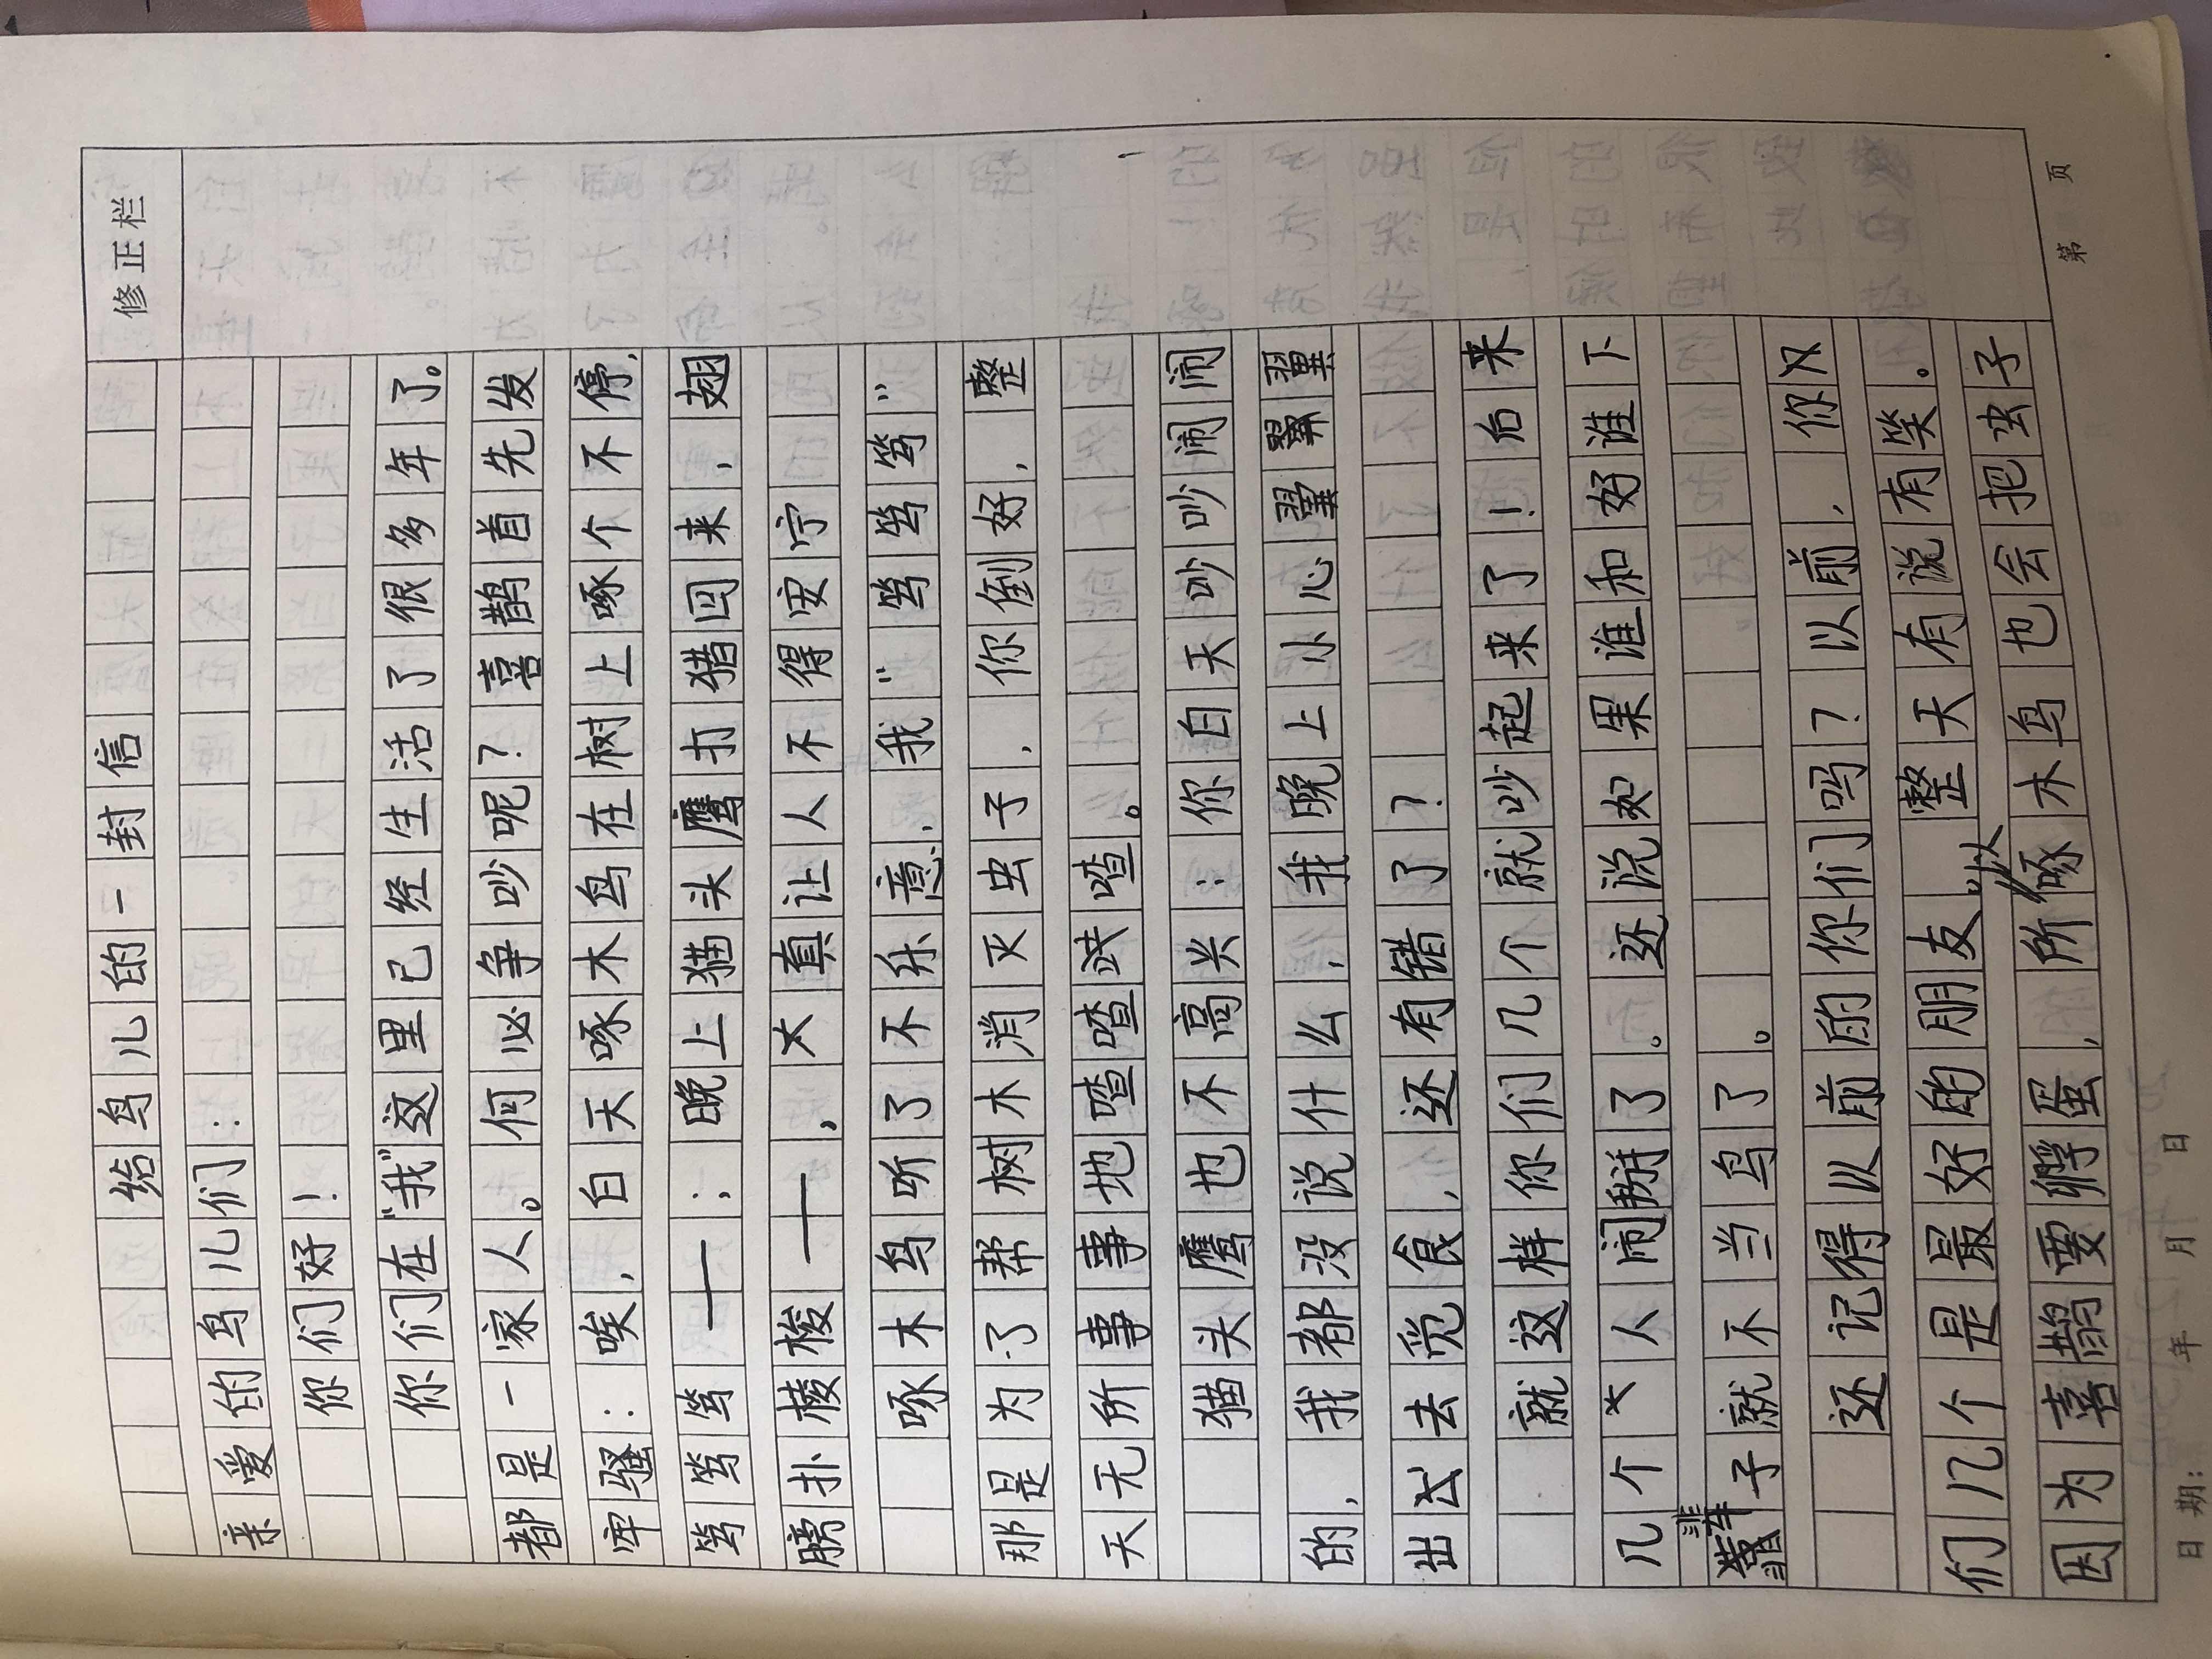 修正栏
给鸟儿的一封信
亲爱的鸟儿们：
你们好！
你们在“我”这里已经生活了很多年了。
都是一家人。何必争吵呢？喜鹊首先发
牢骚：唉，白天啄木鸟在树上啄个不停，
笃笃笃——；晚上猫头鹰打猎回来，翅
膀扑棱梭——，真让人不得安宁
啄木鸟听了不乐意，我“笃笃笃”
那是为了帮树木消灭虫子，你倒好，整
天无所事事地喳喳跌喳。
猫头鹰也不高兴：你白天吵吵闹闹
的，我都没说什么，我晚上小心翼翼
出去觅食，还有错了？
就这样你们几个就吵起来了！后来
几个人闹掰了。还说如果谁和好谁下
子就不当鸟了。
还记得以前的你们吗？以前，你又
们几个是最好的朋友。整天有说有笑。
因为喜鹊要孵蛋，所以啄木鸟也会把虫子
日期：年月日
第页